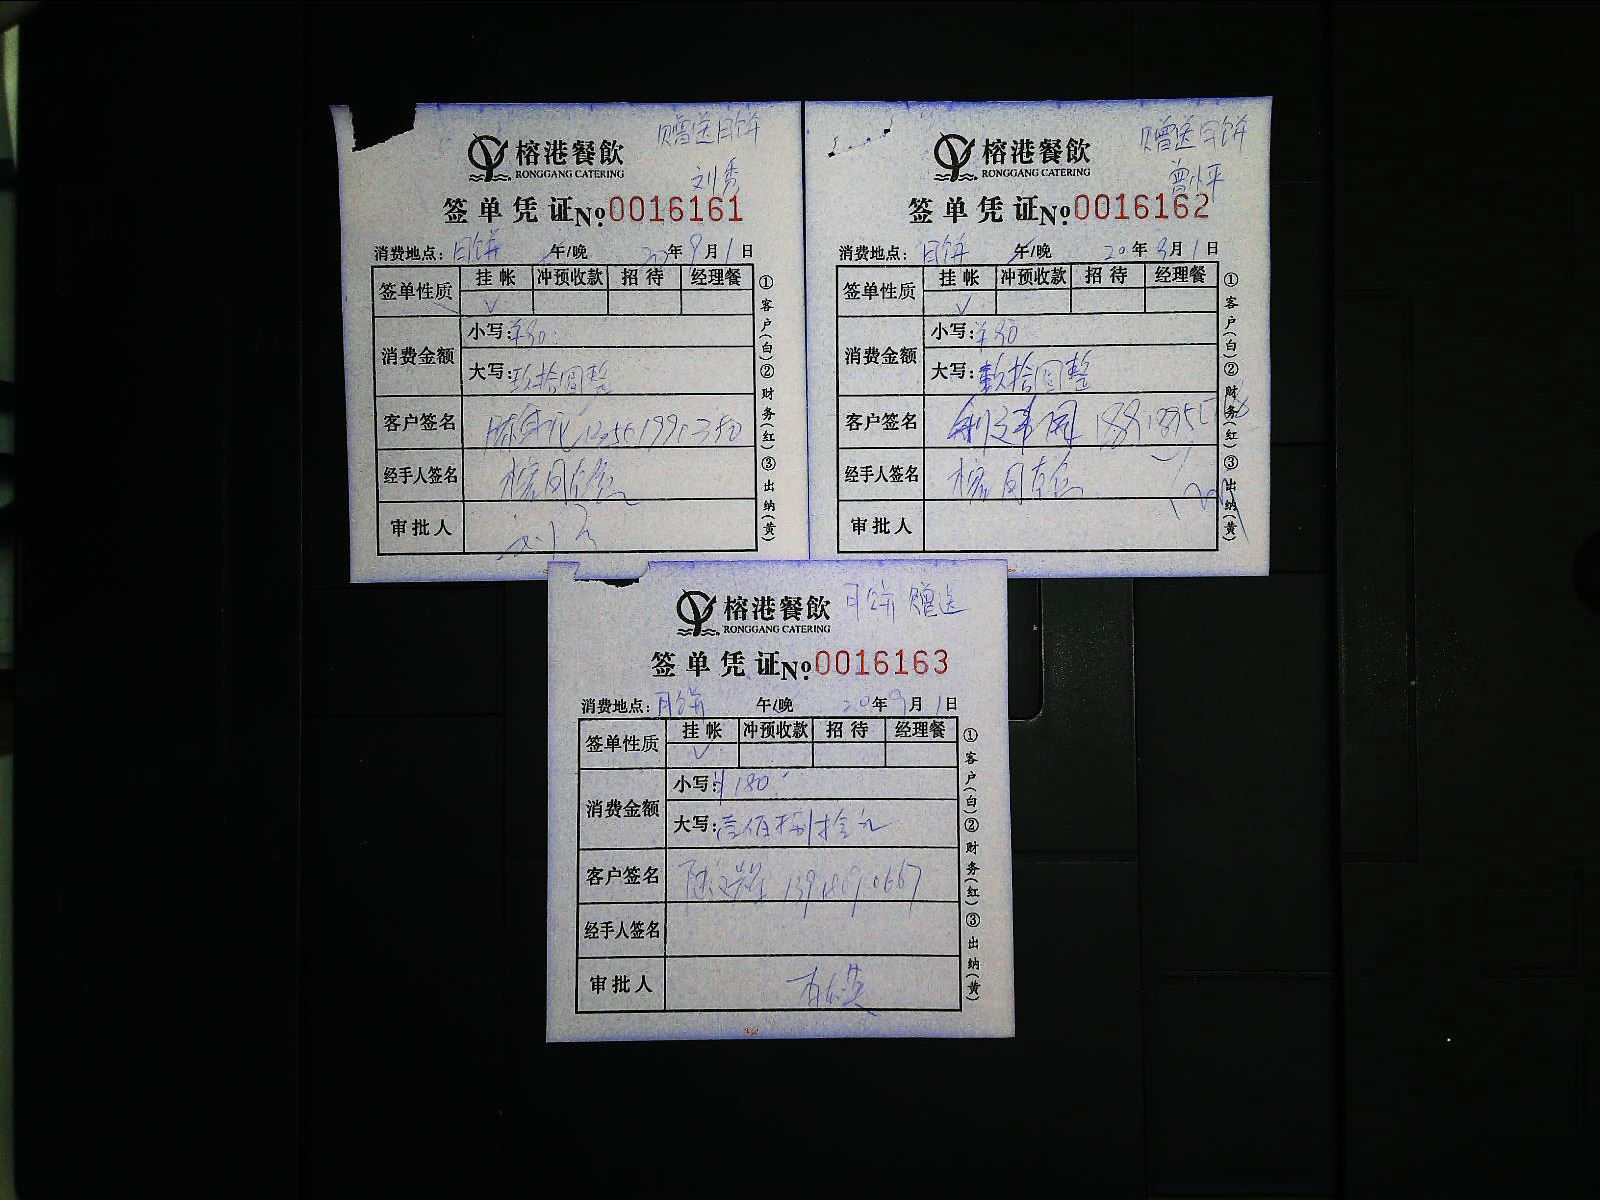 赠送月饼
榕港餐飲
RONGGANG CATERING
刘秀
签单凭证 No 0016161
消费地点: 月饼 午/晚 20年9月1日
签单性质 挂帐 冲预收款 招待 经理餐
√
消费金额 小写: ¥90
大写: 玖拾圆整
客户签名
经手人签名
审批人
①客户(白)②财务(红)③出纳(黄)
赠送月饼
榕港餐飲
RONGGANG CATERING
曾小平
签单凭证 No 0016162
消费地点: 月饼 午/晚 20年9月1日
签单性质 挂帐 冲预收款 招待 经理餐
√
消费金额 小写: ¥90
大写: 玖拾圆整
客户签名
经手人签名
审批人
①客户(白)②财务(红)③出纳(黄)
月饼赠送
榕港餐飲
RONGGANG CATERING
签单凭证 No 0016163
消费地点: 月饼 午/晚 20年9月1日
签单性质 挂帐 冲预收款 招待 经理餐
√
消费金额 小写: ¥180
大写: 壹佰捌拾元
客户签名
经手人签名
审批人
①客户(白)②财务(红)③出纳(黄)